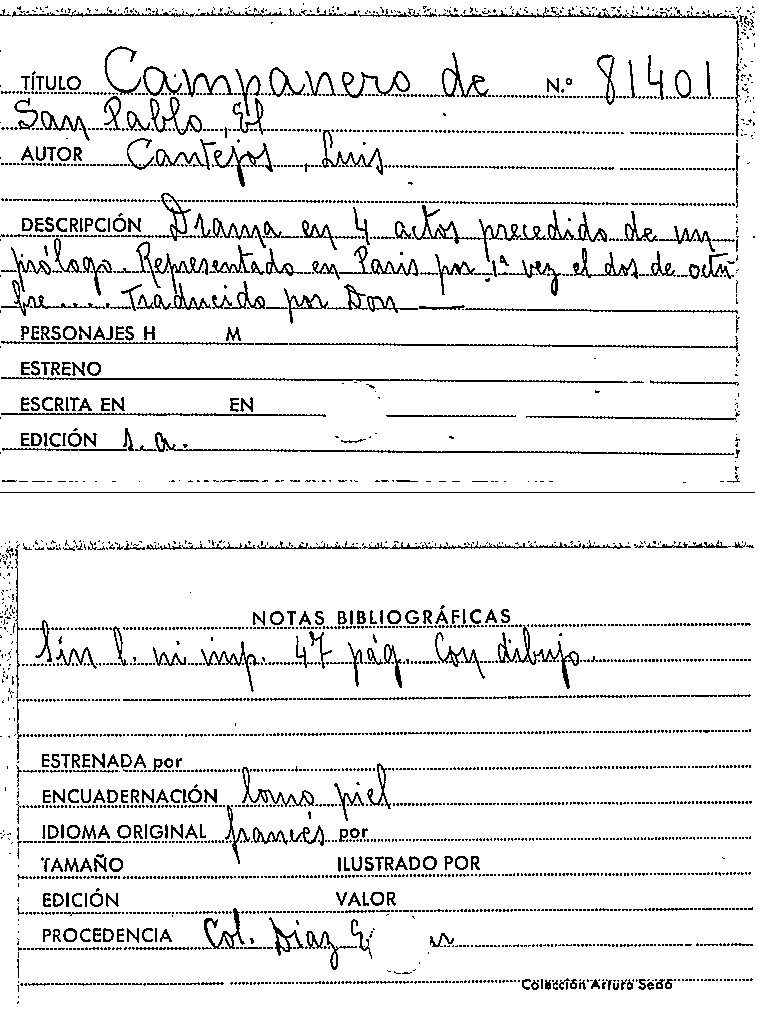 TÍTULO Campanero de N.º 81401
San Pablo, El
AUTOR Cantejos, Luis
DESCRIPCIÓN Drama en 4 actos precedido de un
prólogo. Representado en Paris por 1ª vez el dos de octu
bre .... Traducido por Don —
PERSONAJES H M
ESTRENO
ESCRITA EN EN
EDICIÓN s.a.
NOTAS BIBLIOGRÁFICAS
Sin l. ni imp. 47 pág. Con dibujo.
ESTRENADA por
ENCUADERNACIÓN lomo piel
IDIOMA ORIGINAL francés por
TAMAÑO ILUSTRADO POR
EDICIÓN VALOR
PROCEDENCIA Col. Diaz
Colección Arturo Sedó